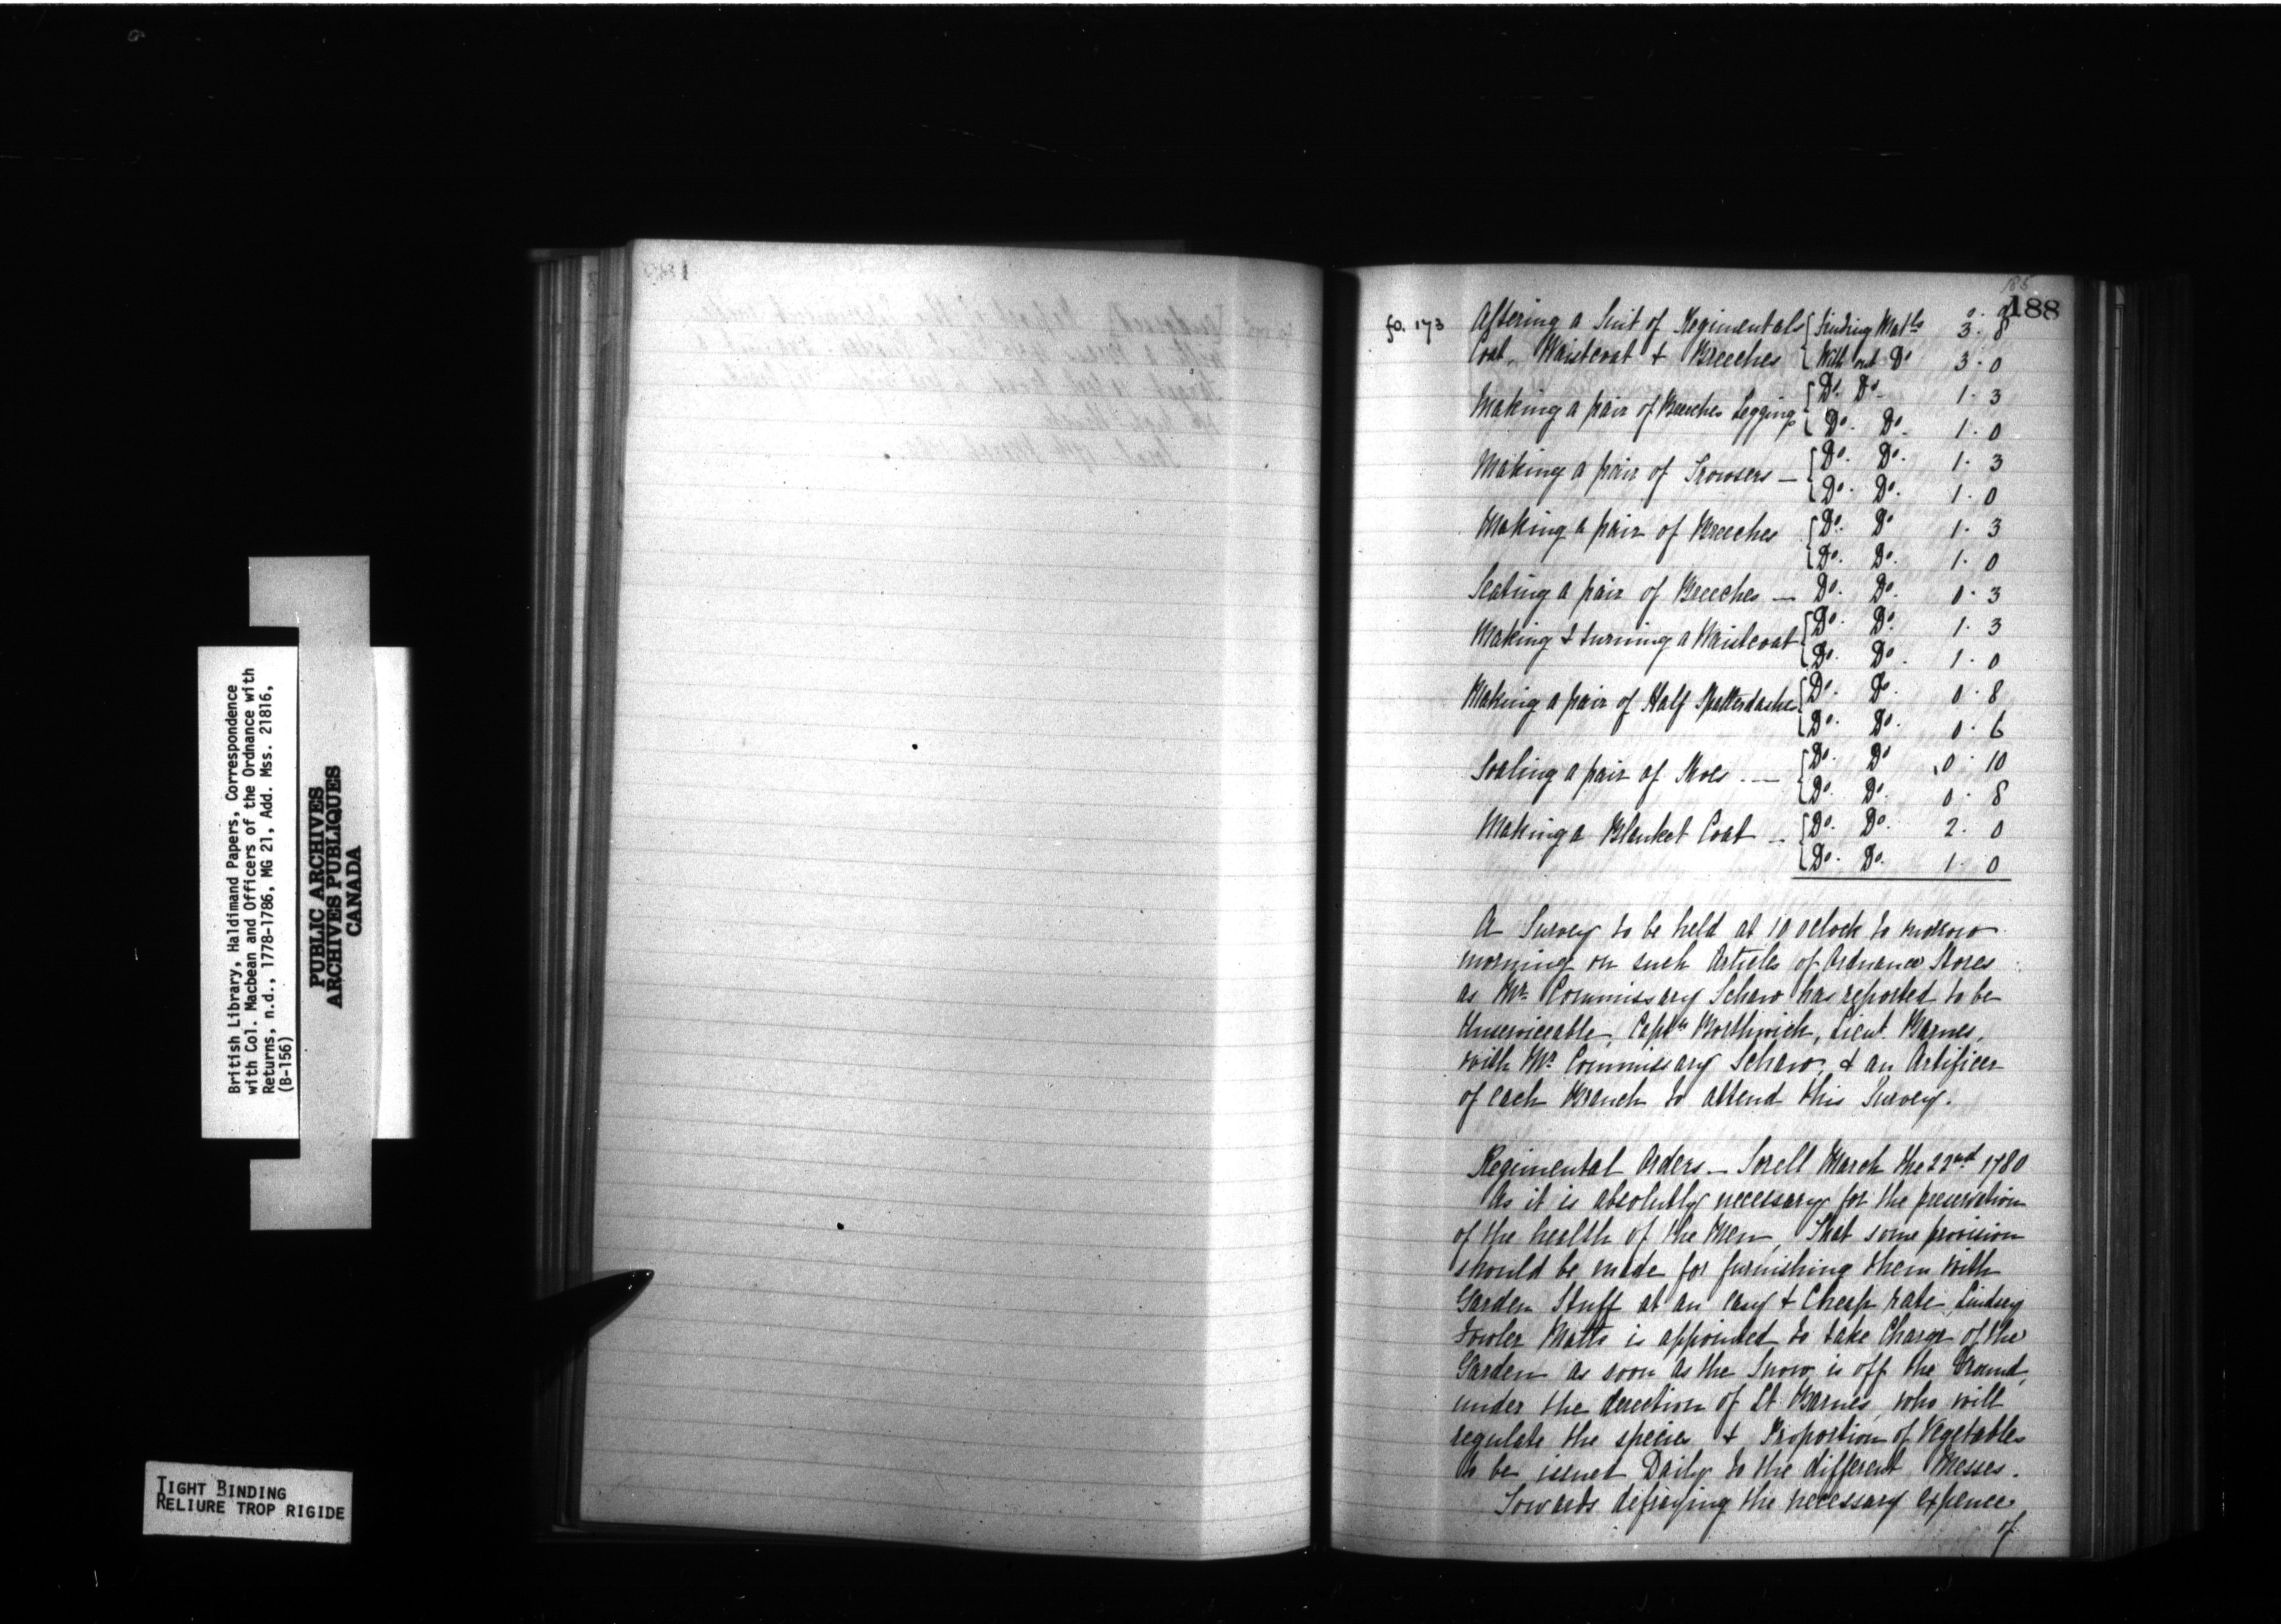 British Library, Haldimand Papers, Correspondence
with Col. Macbean and Officers of the Ordnance with
Returns, n.d., 1778-1786, MG 21, Add. Mss. 21816,
(B-156)
PUBLIC ARCHIVES
ARCHIVES PUBLIQUES
CANADA
TIGHT BINDING
RELIURE TROP RIGIDE
188
fo. 173
Altering a Suit of Regimentals { finding Matls 3 . 8
Coat, Waistcoat & Breeches { With out Do 3 . 0
Making a pair of Breeches Leggings { Do. Do. 1 . 3
{ Do. Do. 1 . 0
Making a pair of Trowsers — { Do. Do. 1 . 3
{ Do. Do. 1 . 0
Making a pair of Breeches { Do. Do 1 . 3
{ Do. Do. 1 . 0
Seating a pair of Breeches — Do. Do. 0 . 3
Making & turning a Waistcoat { Do. Do. 1 . 3
{ Do. Do. 1 . 0
Making a pair of Half Spatterdashes { Do. Do. 0 . 8
{ Do. Do. 0 . 6
Soaling a pair of Shoes — { Do. Do 0 . 10
{ Do. Do. 0 . 8
Making a Blanket Coat — { Do. Do. 2 . 0
{ Do. Do. 1 . 0
A Survey to be held at 10 oclock to morrow
morning on such Articles of Ordnance Stores
as Mr. Commissary Schaw has reported to be
Unserviceable, Captn Borthwick, Lieut. Barnes,
with Mr Commissary Schaw, & an Artificer
of each Branch to attend this Survey.
Regimental Orders — Sorell March the 22nd 1780
As it is absolutly necessary for the preservation
of the health of the Men, That some provision
should be made for furnishing them with
Garden Stuff at an easy & Cheap rate, Lindsey
Fowler Matts is appointed to take Charge of the
Garden as soon as the Snow is off the Ground,
under the derection of Lt Barnes, who will
regulate the species & Proportion of Vegetables
to be issued Daily to the different Messes.
Towards defraying the necessary expence
of